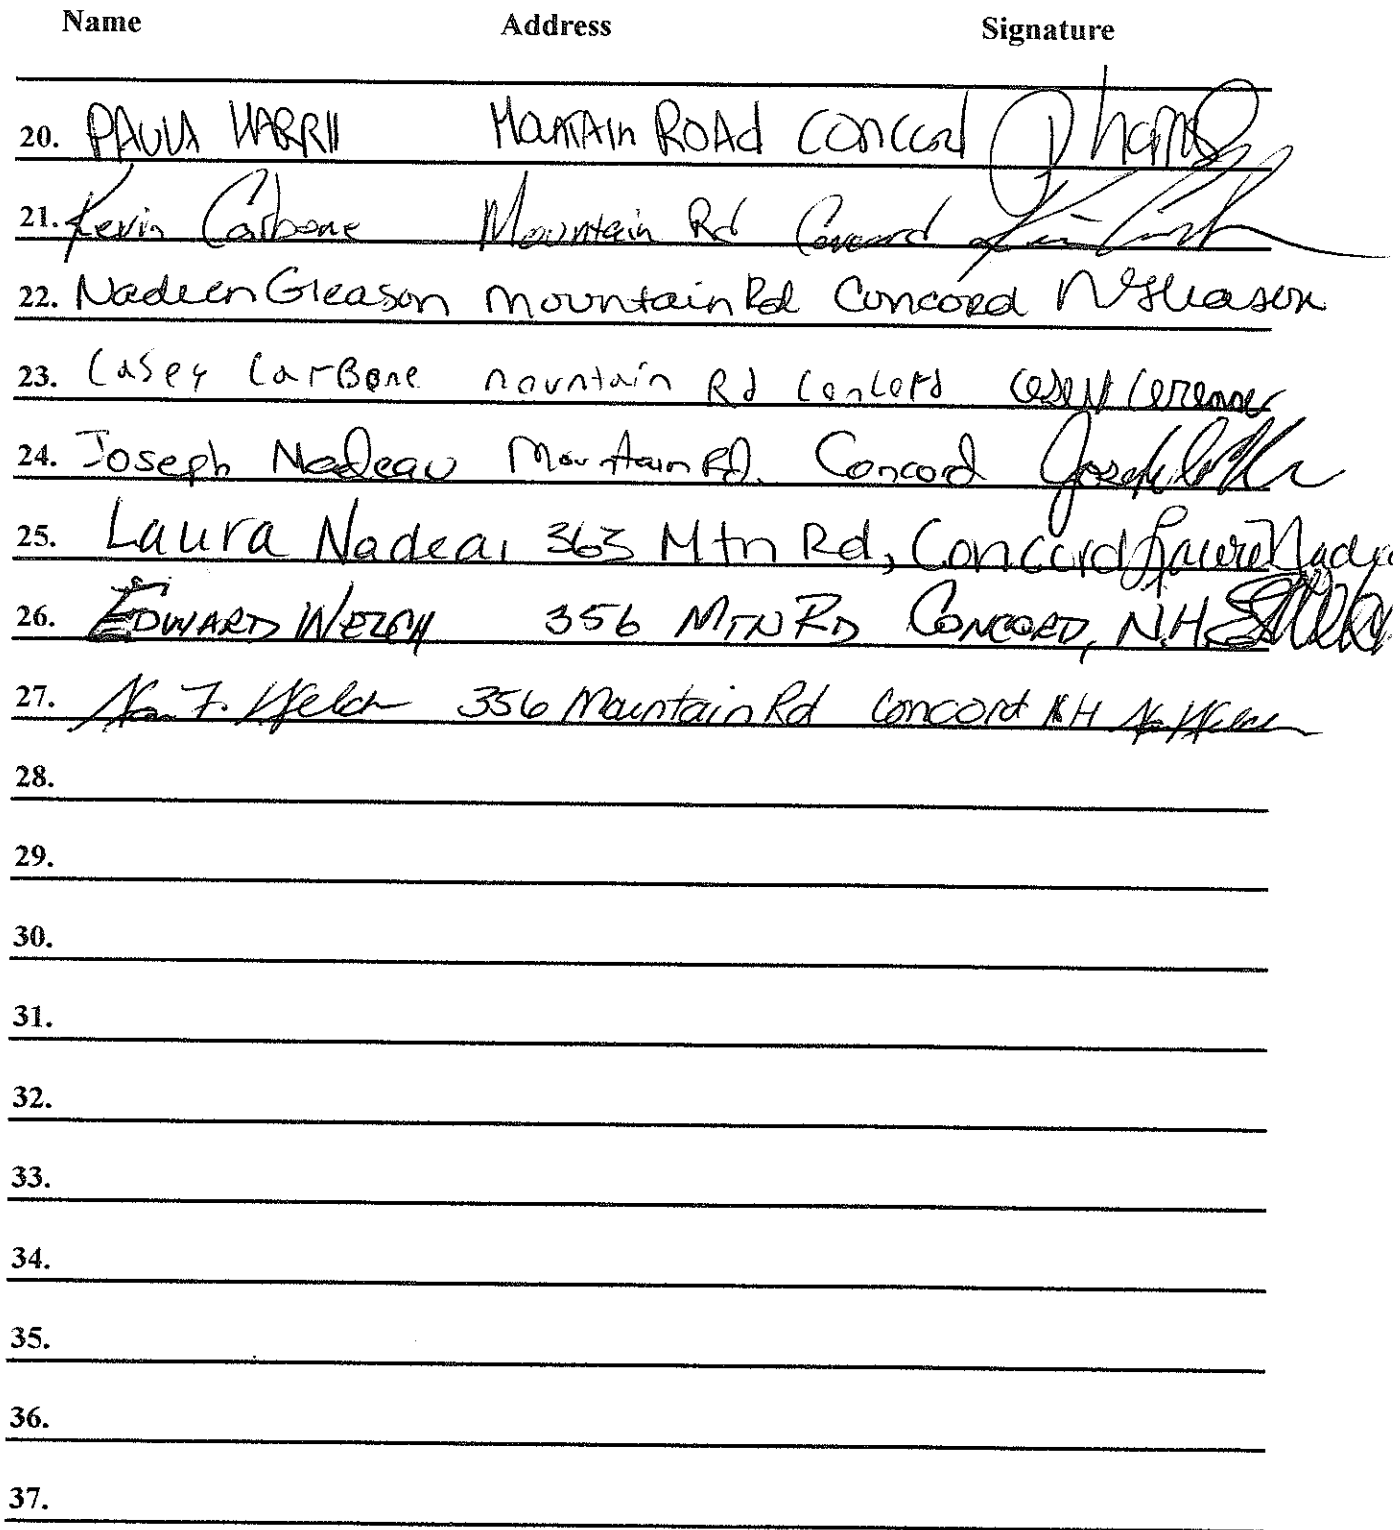 Name Address Signature
20. PAULA HARRII Mountain ROAd Concord P Harris
21. Kevin Carbone Mountain Rd Concord
22. Nadeen Gleason Mountain Rd Concord N Gleason
23. Casey CarBone Mountain Rd Concord
24. Joseph Nadeau Mountain Rd. Concord
25. Laura Nadeau 363 Mtn Rd, Concord Laura Nadeau
26. EDWARD WELCH 356 MTN RD CONCORD, N.H.
27. F. Welch 356 Mountain Rd Concord NH Welch
28.
29.
30.
31.
32.
33.
34.
35.
36.
37.